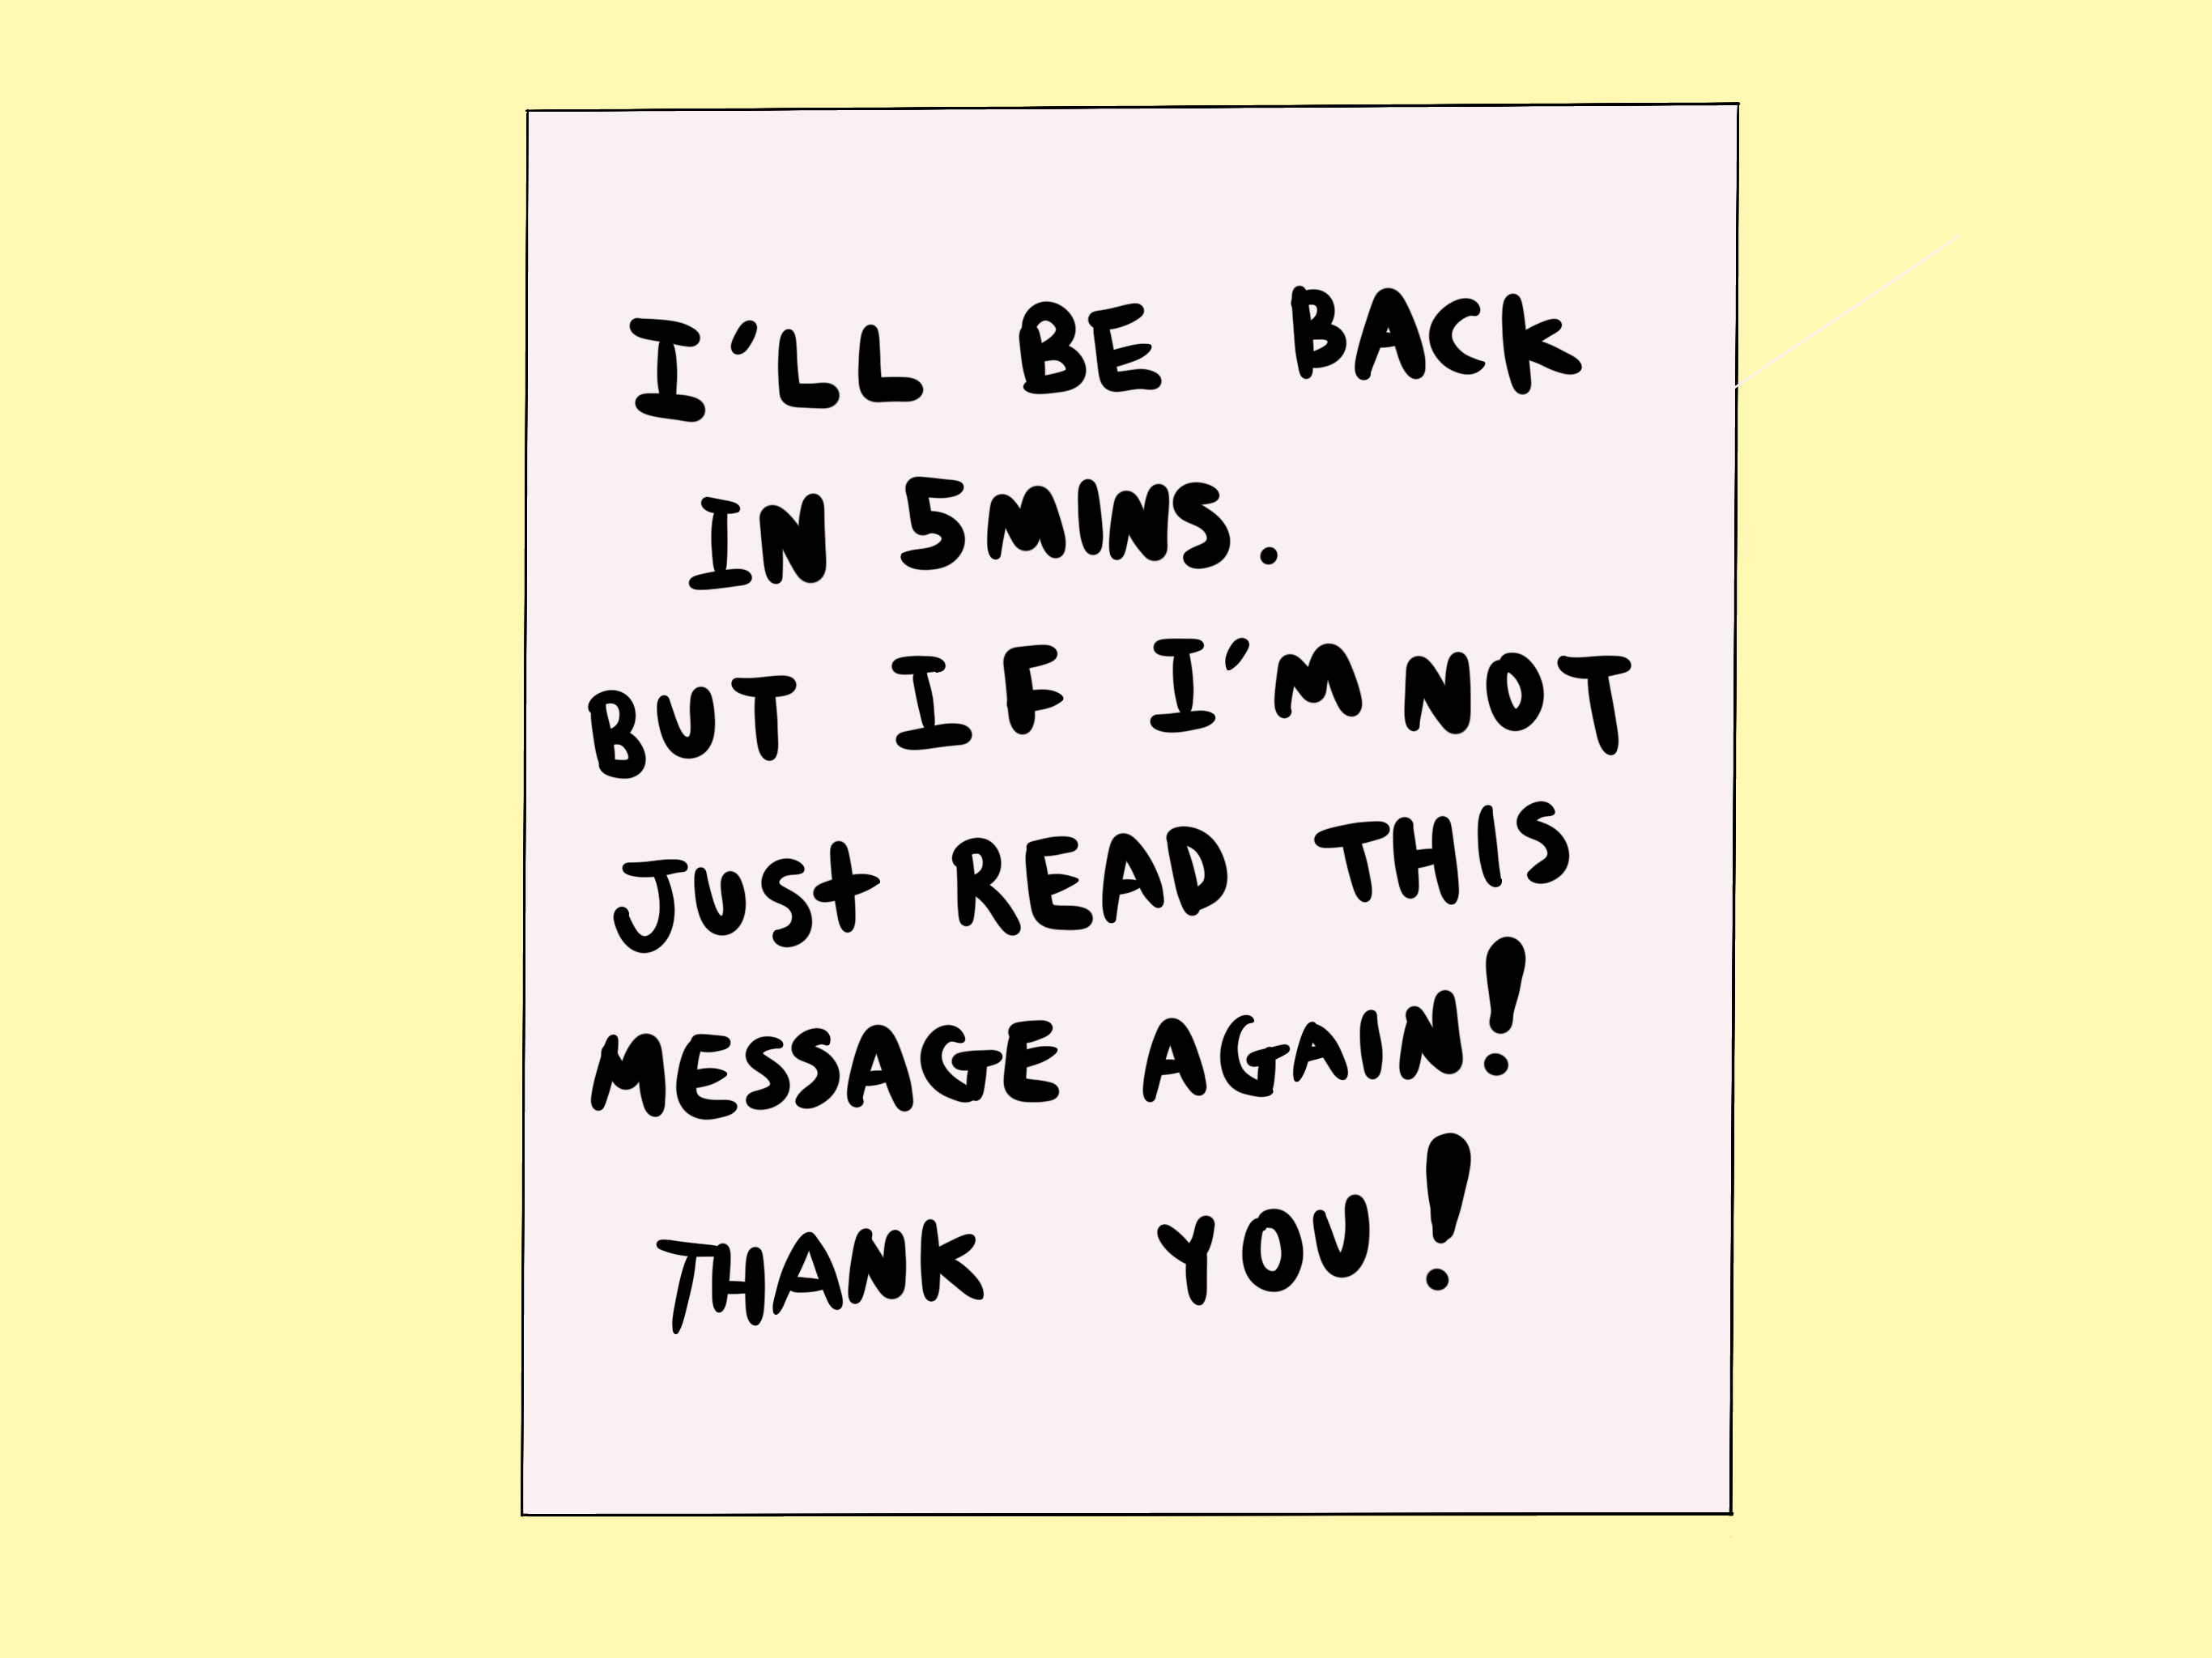 I'LL BE BACK
IN 5MINS.
BUT IF I'M NOT
JUSt READ THIS
MESSAGE AGAIN!
THANK YOU!